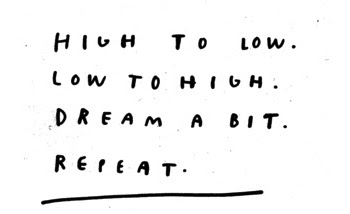 HIGH TO LOW.
LOW TO HIGH.
DREAM A BIT.
REPEAT.